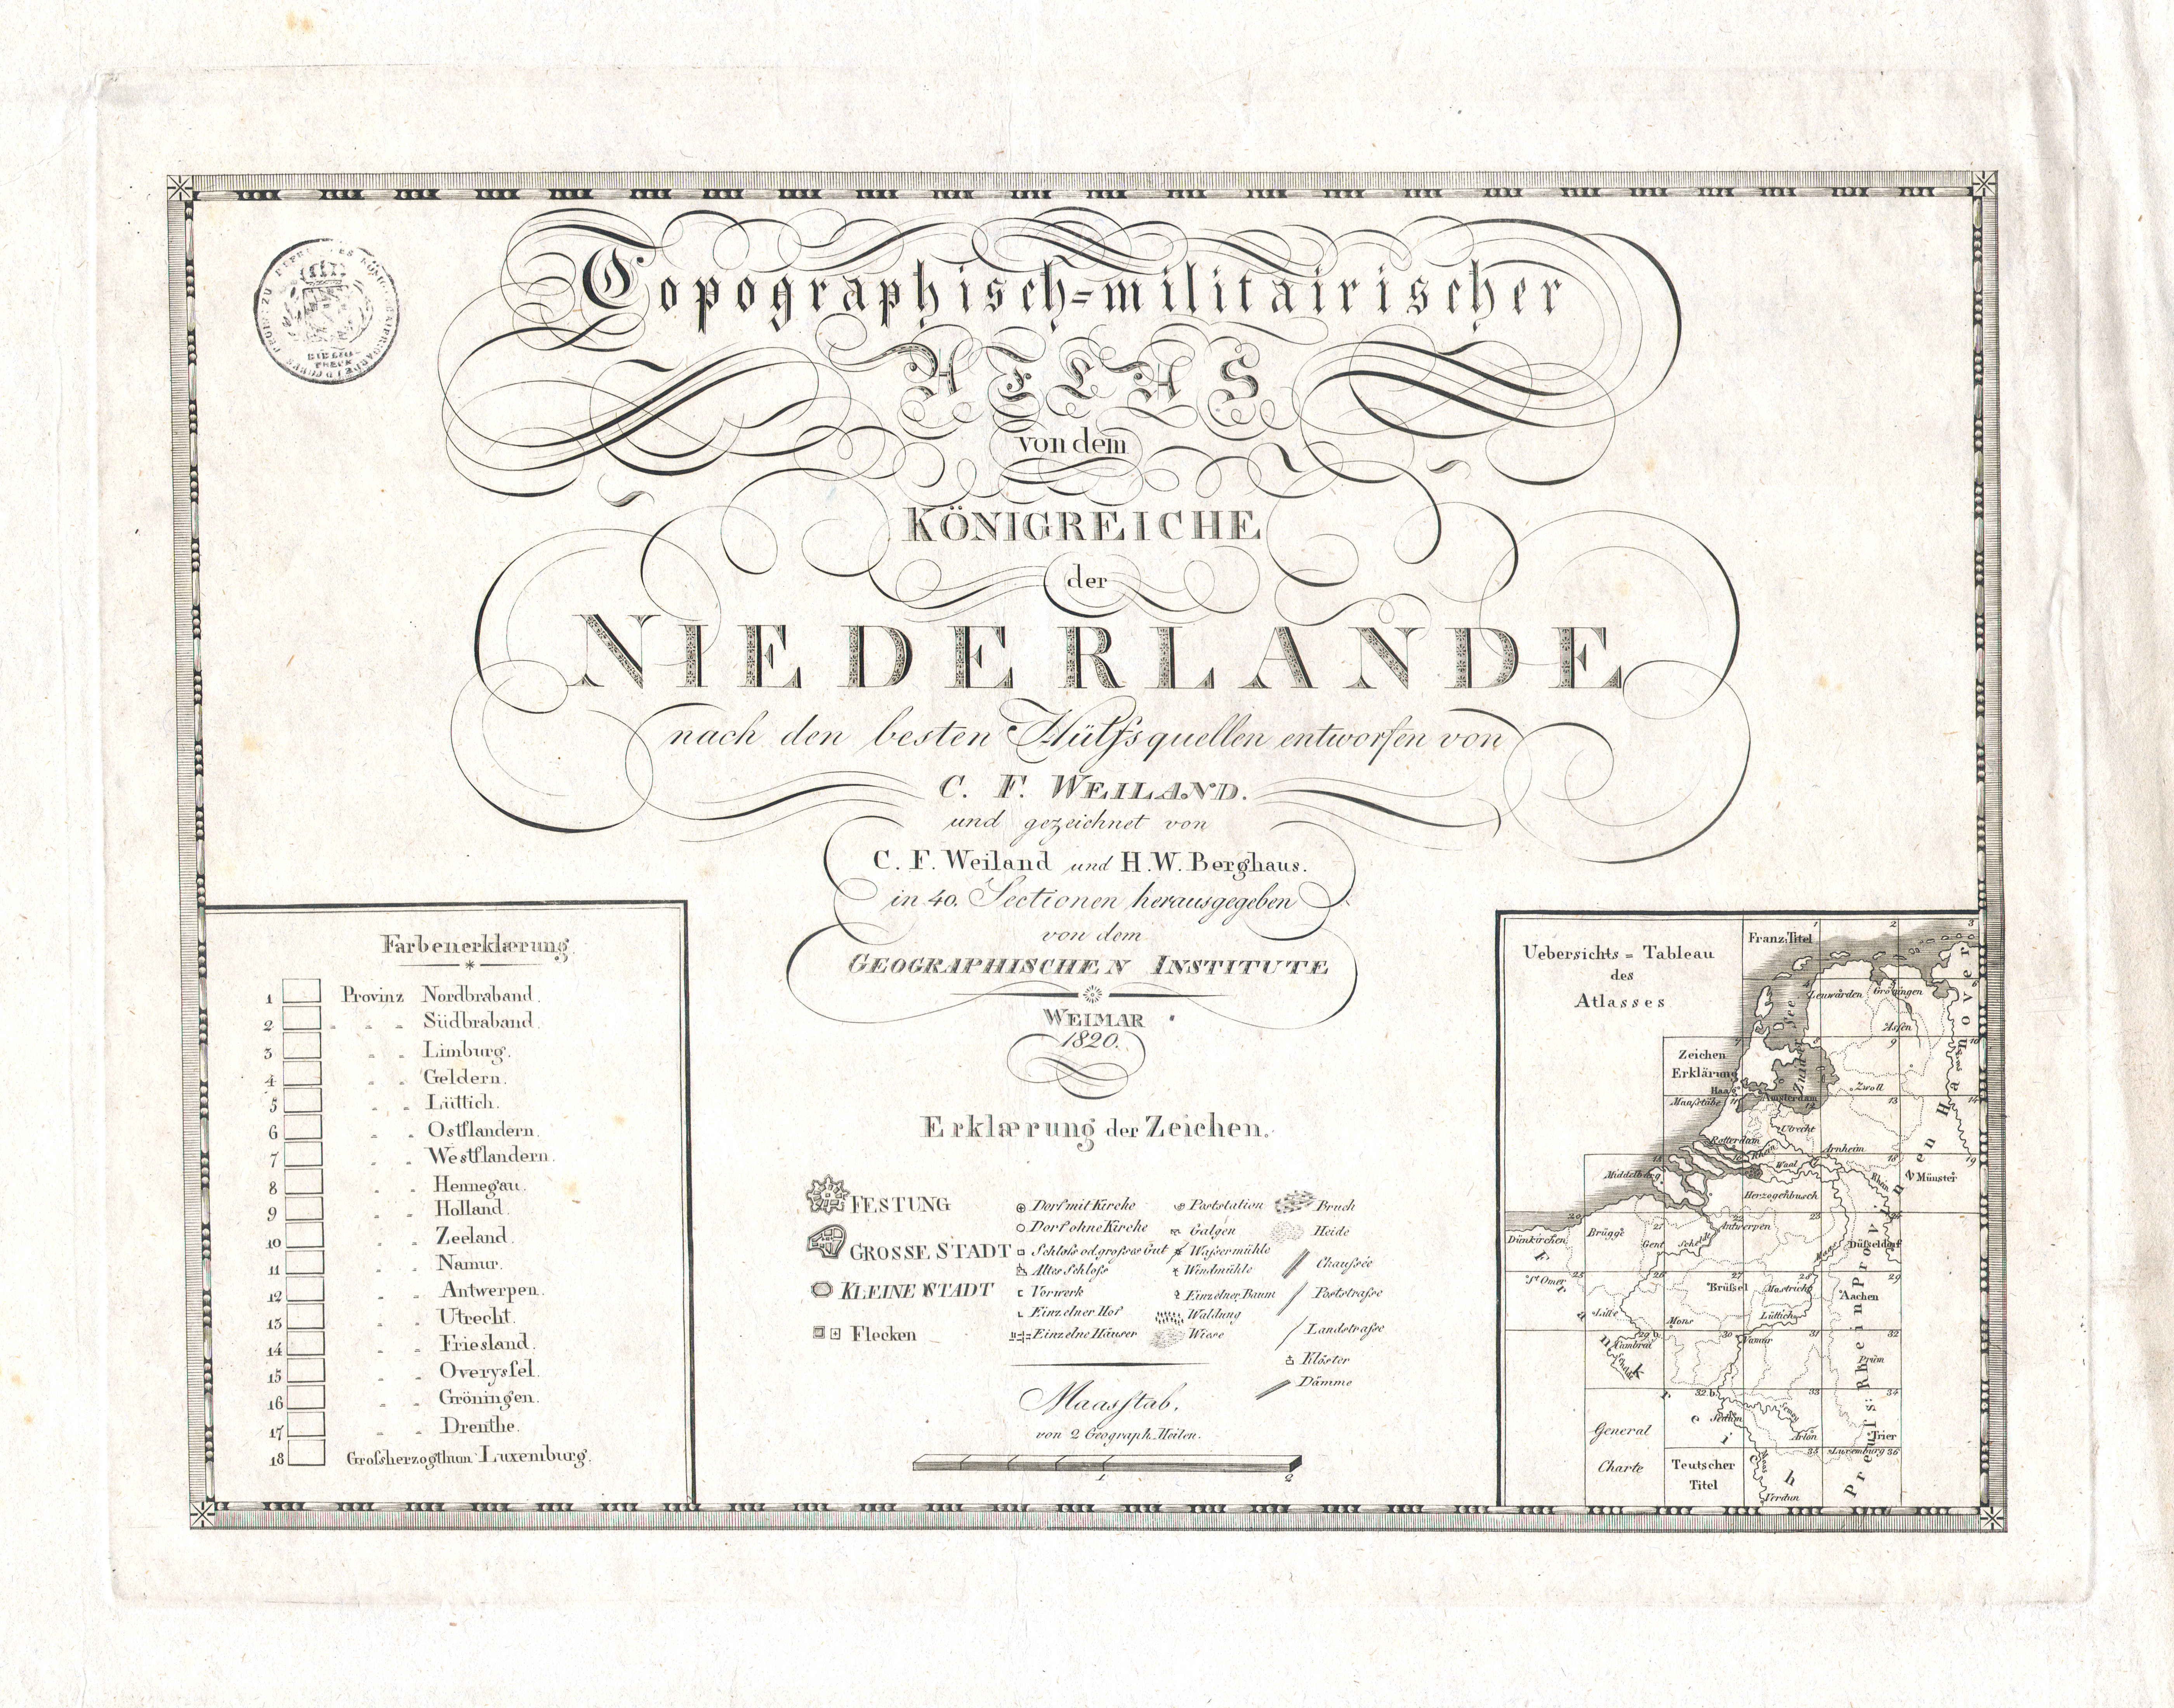 Topographisch=militairischer
ATLAS
von dem
KÖNIGREICHE
der
NIEDERLANDE
nach den besten Hülfsquellen entworfen von
C. F. WEILAND.
und gezeichnet von
C. F. Weiland und H. W. Berghaus.
in 40. Sectionen herausgegeben
von dem
GEOGRAPHISCHEN INSTITUTE
WEIMAR
1820.
BIBLIO-
THECK
Farbenerklærung.
1 Provinz Nordbraband.
2 " " " Südbraband.
3 " " Limburg.
4 " " Geldern.
5 " " Lüttich.
6 " " Ostflandern.
7 " " Westflandern.
8 " " Hennegau.
9 " " Holland.
10 " " Zeeland.
11 " " Namur.
12 " " Antwerpen.
13 " " Utrecht.
14 " " Friesland.
15 " " Overyssel.
16 " " Gröningen.
17 " " Drenthe.
18 Grosherzogthum Luxemburg.
Erklærung der Zeichen.
FESTUNG
GROSSE STADT
KLEINE STADT
Flecken
Dorf mit Kirche
Dorf ohne Kirche
Schloß od. großes Gut
Altes Schloß
Vorwerk
Einzelner Hof
Einzelne Häuser
Poststation
Galgen
Waßermühle
Windmühle
Einzelner Baum
Waldung
Wiese
Bruch
Heide
Chaußée
Poststraße
Landstraße
Klöster
Dämme
Maasstab.
von 2 Geograph. Meilen.
1 2
Uebersichts = Tableau
des
Atlasses
Franz: Titel
1 2 3
Leuwarden
Gröningen
Assen
Zuider See
Hannover
Zeichen
Erklärung
9 10
Haag
Zwoll
Maaßstäbe
Amsterdam
11 12 13 14
Utrecht
Rotterdam
Rhein
Arnheim
Waal
Middelburg
Rhein
Münster
Herzogenbusch
19
20 21 22 23
Dünkirchen
Brügge
Gent
Schelde
Antwerpen
Maas
Düsseldorf
St Omer
25 26 27 28 29
Brüssel
Mastricht
Aachen
Lille
Mons
Lüttich
Cambrai
29 b.
30 31 32
Namur
Prüm
Frankreich
32 b. 33 34
Sedan
Semoy
Arlon
Trier
General
Charte
35 Luxemburg 36
Teutscher
Titel
Maas
Verdun
Preuss: Rheinprovinzen